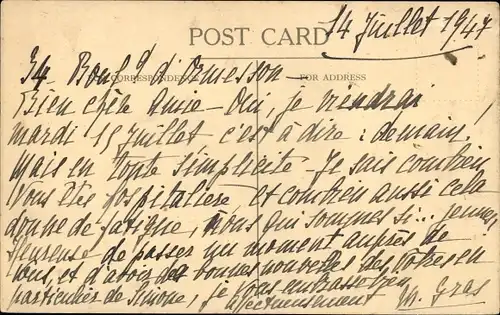 14 Juillet 1947
POST CARD
34 Boul.d d'Ormesson -
CORRESPONDENCE
FOR ADDRESS
Bien chère Amie - Oui, je viendrai
mardi 15 Juillet c'est à dire : demain.
Mais en toute simplicité - Je sais combien
vous êtes hospitalière, et combien aussi cela
donne de fatigue, nous qui sommes si... jeunes,
Heureuse de passer un moment auprès de
vous, et d'avoir des bonnes nouvelles des vôtres en
particulier de Simone, je vous embrasse bien
affectueusement M. Gras